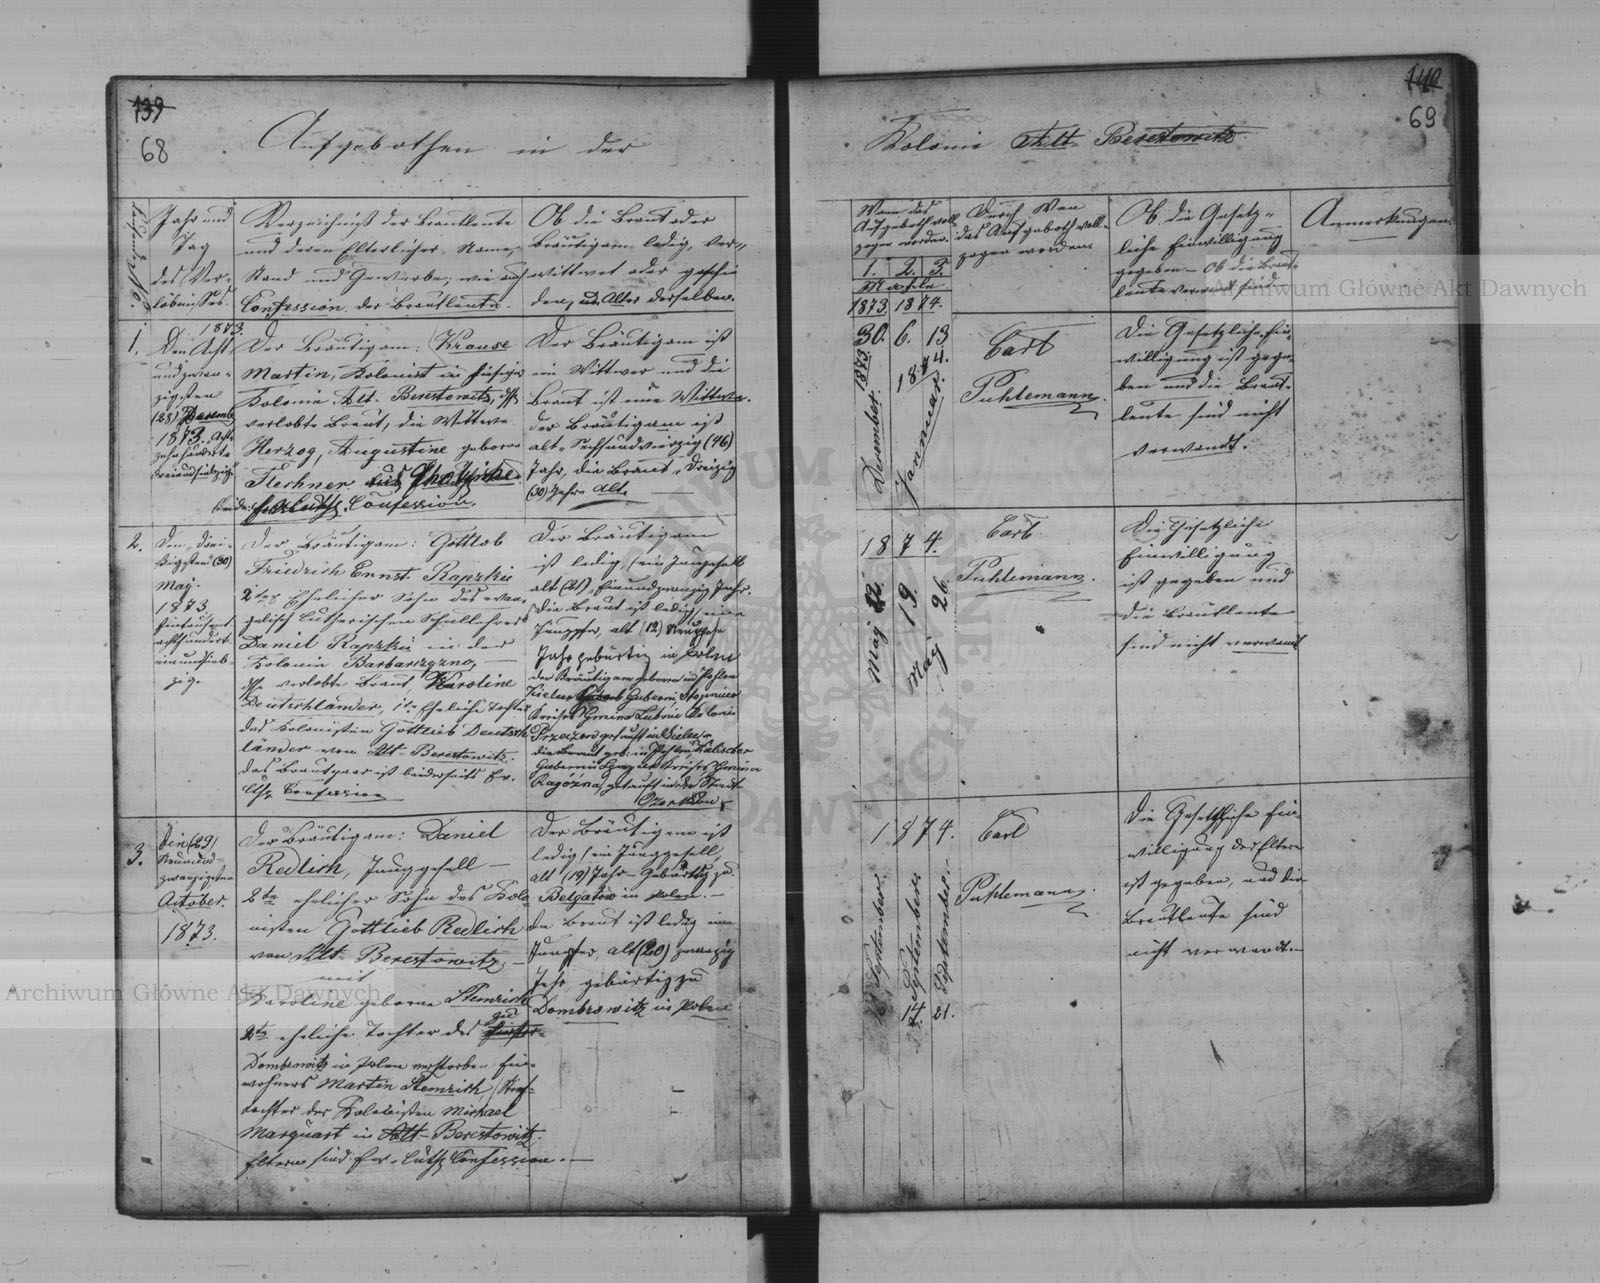 139
68
Aufgebothen in der
Laufende No.
Jahr und
Tag
des Ver-
löbnisses.
Verzeichniß der Brautleute
und deren Elterlicher Name,
Stand und Gewerbe, wie auch
Confession der Brautleute.
Ob die Braut oder
Bräutigam ledig, Ver-
wittwet oder geschie
den, u. Alter derselben.
1.
1873.
Den Acht
und zwan-
zigsten
(28) Decemb
1873. Acht
zehnhundert
dreiundsiebzig
Der Bräutigam: Krause
Martin, Kolonist in hiesiger
Kolonie Alt-Berestowitz,
verlobte Braut, die Wittwe
Herzog, Augustine geborne
Flechner aus
Beide Confession.
Der Bräutigam ist
ein Wittwer und die
Braut ist eine Wittwe.
der Bräutigam ist
alt Sechsundvierzig (46)
Jahr, die Braut Dreizig
(30) Jahr Alt.
2.
Den Drei-
ßigsten (30)
May.
1873.
Eintausend
achthundert
Der Bräutigam: Gottlob
Friedrich Ernst Rapzki
2ter Ehelicher Sohn des evan
gelisch Lutherischen Schullehrers
Daniel Rapzki in der
Kolonie
verlobte Braut, Karoline
Deutschländer, 1te Eheliche Tochter
des Kolonisten Gottlieb Deutsch
länder von Alt-Berestowitz.
das Brautpaar ist beiderseits Ev.
Luth. Confession
Der Bräutigam
ist ledig, ein Junggesell
alt (21) Einundzwanzig Jahr.
die Braut ist ledig, eine
Jungfer, alt
Jahr gebürtig in Polen
der Bräutigam geboren in Pohlen
Guberni
Kreises Gmina Kolonie
getauft in
die Braut geb: in Pohlen Kalischer
Guberni Kreises Gmina
getauft in der Stadt
3.
Den (29)
Neunund-
zwanzigsten
October.
1873.
Der Bräutigam: Daniel
Redlich, Junggesell
2te ehelicher Sohn des Kolo
nisten Gottlieb Redlich
von Alt-Berestowitz
mit
Karoline geborne Hemrich
2te eheliche Tochter des
zu
Dombrowitz in Polen verstorben Ein-
wohners Martin Hemrich, Stief-
tochter des Kolonisten Michael
Marquart in Alt-Berestowitz.
Eltern sind Ev. Luth Confession.
Der Bräutigam ist
ledig, ein Junggesell,
alt (19) Jahr Gebürtig zu
Belgatow in Polen.
die Braut ist ledig eine
Jungfer alt (20) zwanzig
Jahr, gebürtig zu
Dombrowitz in Polen
140
69
Kolonie Alt-Berestowitz.
Wann das
Aufgeboth voll
zogen worden.
1. 2. 3.
Mahle
1873. 1874.
Durch Wen
das Aufgeboth voll-
zogen worden
Ob die Gesetz-
liche Einwilligung
gegeben - Ob die Braut-
leute verwandt sind
Anmerkungen.
30. 6. 13
1873.
December.
1874.
Januar.
Carl
Puhlemann.
Die Gesetzliche Ein-
willigung ist gege-
ben und die Braut-
leute sind nicht
verwandt.
1874.
May 12.
May 19.
26.
Carl
Puhlemann.
Die Gesetzliche
Einwilligung
ist gegeben und
die Brautleute
sind nicht verwandt
1874.
September.
14. September.
21. September.
Carl
Puhlemann.
Die Gesetzliche Ein-
willigung der Eltern
ist gegeben, und die
Brautleute sind
nicht verwandt.
Archiwum Główne Akt Dawnych
Archiwum Główne Akt Dawnych